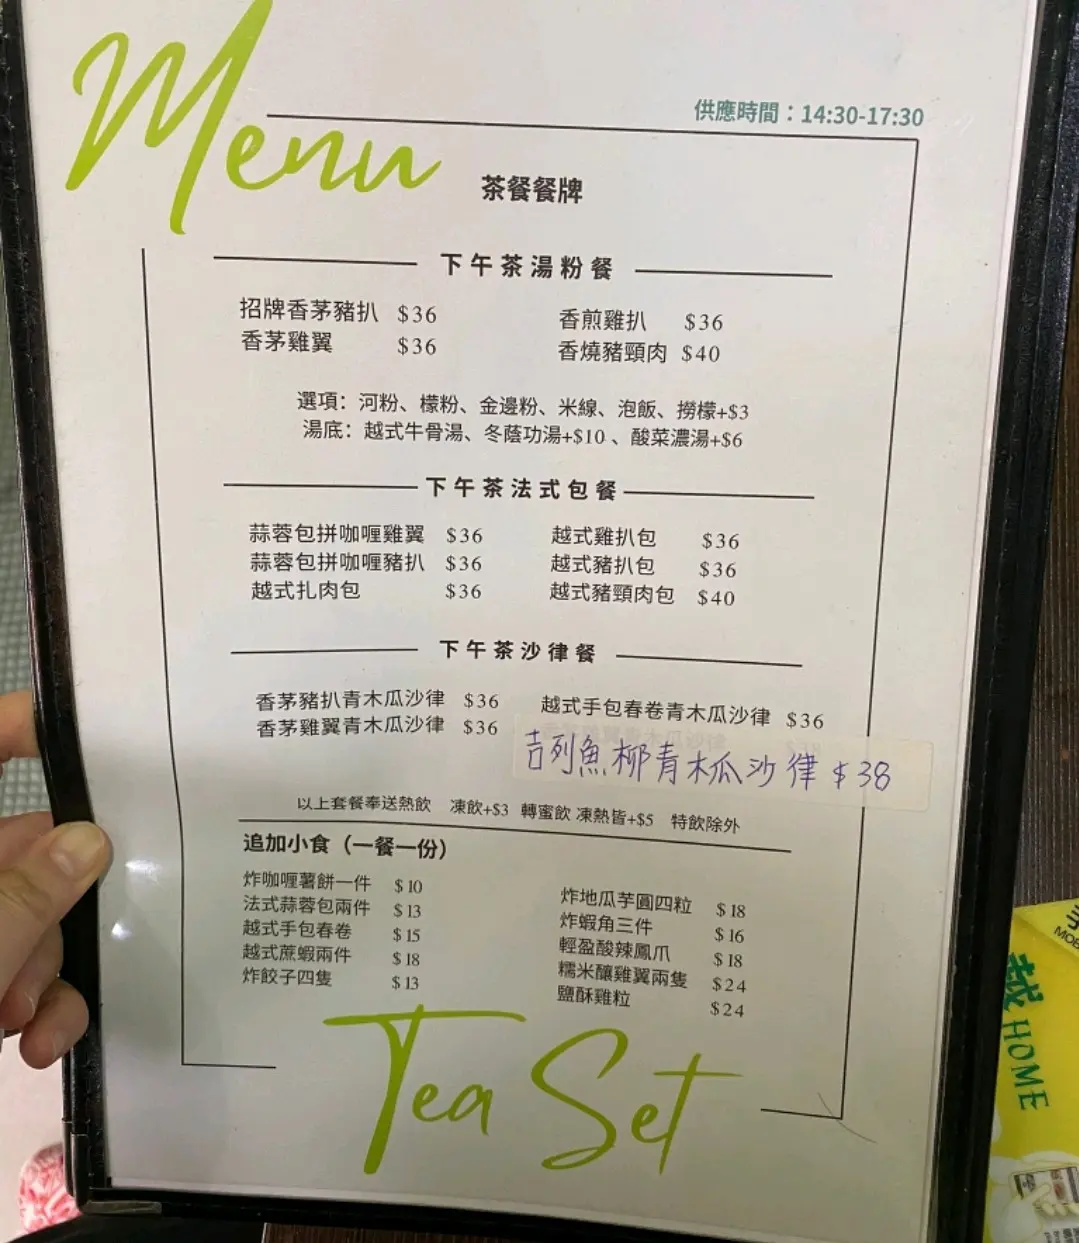 Menu
供應時間：14:30-17:30
茶餐餐牌
下午茶湯粉餐
招牌香茅豬扒 $36 香煎雞扒 $36
香茅雞翼 $36 香燒豬頸肉 $40
選項：河粉、檬粉、金邊粉、米線、泡飯、撈檬+$3
湯底：越式牛骨湯、冬蔭功湯+$10、酸菜濃湯+$6
下午茶法式包餐
蒜蓉包拼咖喱雞翼 $36 越式雞扒包 $36
蒜蓉包拼咖喱豬扒 $36 越式豬扒包 $36
越式扎肉包 $36 越式豬頸肉包 $40
下午茶沙律餐
香茅豬扒青木瓜沙律 $36 越式手包春卷青木瓜沙律 $36
香茅雞翼青木瓜沙律 $36
吉列魚柳青木瓜沙律 $38
以上套餐奉送熱飲 凍飲+$3 轉蜜飲 凍熱皆+$5 特飲除外
追加小食（一餐一份）
炸咖喱薯餅一件 $10 炸地瓜芋圓四粒 $18
法式蒜蓉包兩件 $13 炸蝦角三件 $16
越式手包春卷 $15 輕盈酸辣鳳爪 $18
越式蔗蝦兩件 $18 糯米釀雞翼兩隻 $24
炸餃子四隻 $13 鹽酥雞粒 $24
Tea Set
越 HOME